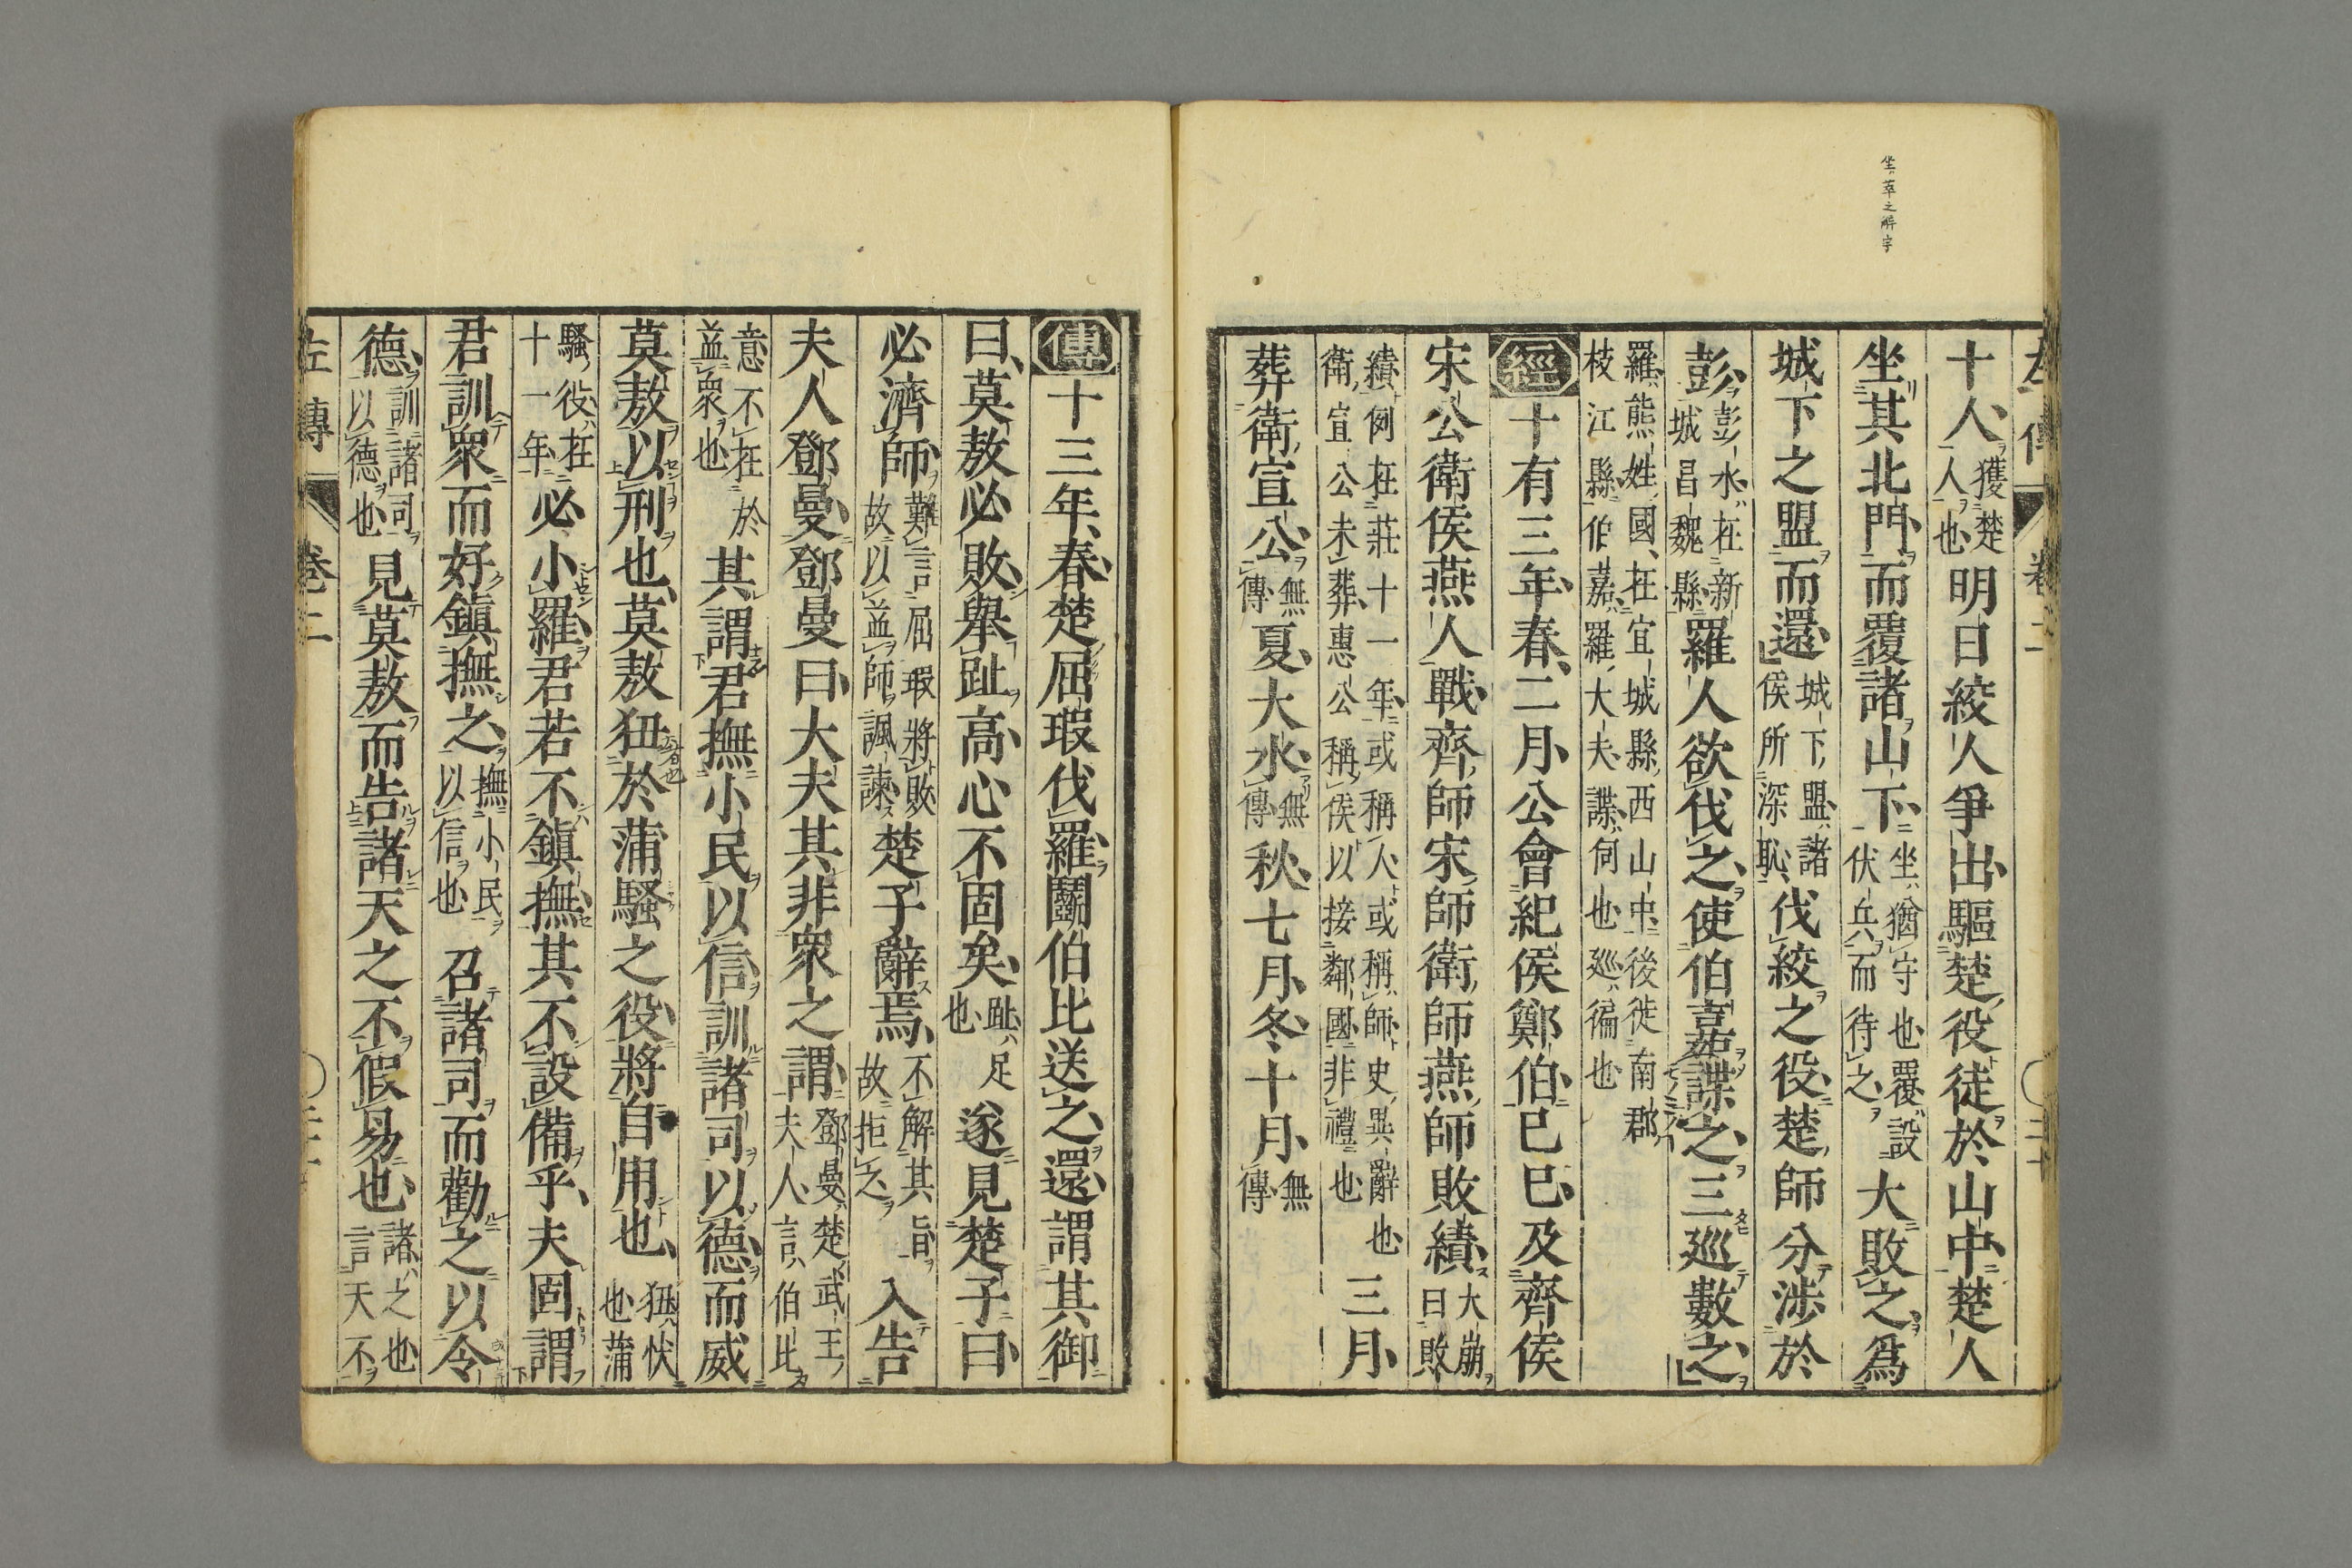 坐ハ萃之解字
左傳 卷二 〇二十
十人獲楚人也明日絞人爭出驅楚役徒於山中楚人
坐其北門而覆諸山下坐猶守也覆設伏兵而待之大敗之爲
城下之盟而還城下盟諸侯所深恥伐絞之役楚師分涉於
彭彭水在新城昌魏縣羅人欲伐之使伯嘉諜之三巡數之
羅熊姓國在宜城縣西山中後徙南郡枝江縣伯嘉羅大夫諜伺也巡徧也
經十有三年春二月公會紀侯鄭伯己巳及齊侯
宋公衛侯燕人戰齊師宋師衛師燕師敗績大崩曰敗
績例在莊十一年或稱人或稱師史異辭也衛宣公未葬惠公稱侯以接鄰國非禮也三月
葬衛宣公無傳夏大水無傳秋七月冬十月無傳
傳十三年春楚屈瑕伐羅鬬伯比送之還謂其御
曰莫敖必敗舉趾高心不固矣趾足也遂見楚子曰
必濟師難言屈瑕將敗故以益師諷諫楚子辭焉不解其旨故拒之入告
夫人鄧曼鄧曼曰大夫其非衆之謂鄧曼楚武王夫人言伯比
意不在於益衆也其謂君撫小民以信訓諸司以德而威
莫敖以刑也莫敖狃於蒲騷之役將自用也狃忕也蒲
騷役在十一年必小羅君若不鎮撫其不設備乎夫固謂
君訓衆而好鎮撫之撫小民以信也召諸司而勸之以令
德訓諸司以德也見莫敖而告諸天之不假易也諸之也言天不
左傳 卷二